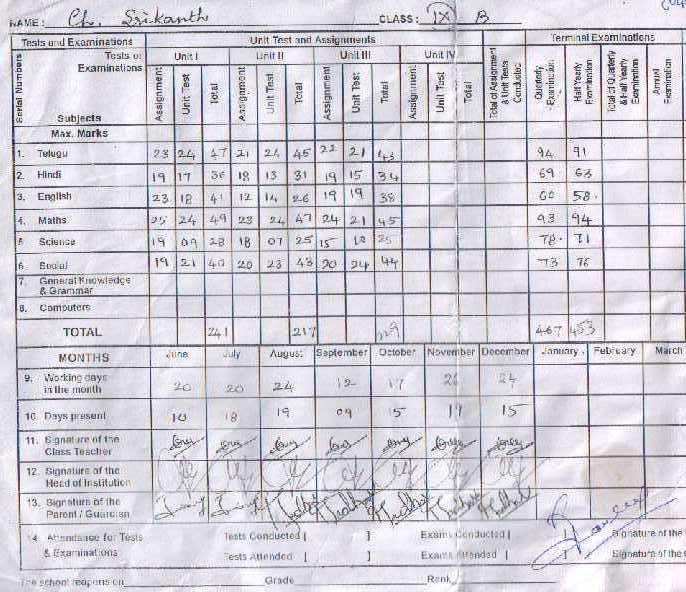 NAME: Ch. Srikanth CLASS: IX B
Tests and Examinations Unit Test and Assignments Terminal Examinations
Serial Numbers Tests or Examinations Unit I Unit II Unit III Unit IV
Subjects Assignment Unit Test Total Assignment Unit Test Total Assignment Unit Test Total Assignment Unit Test Total Total of Assignment & Unit Tests Conducted Quarterly Examination Half Yearly Examination Total of Quarterly & Half Yearly Examination Annual Examination
Max. Marks
1. Telugu 23 24 47 21 24 45 22 21 43 94 91
2. Hindi 19 17 36 18 13 31 19 15 34 69 63
3. English 23 18 41 12 14 26 19 19 38 60 58
4. Maths 25 24 49 23 24 47 24 21 45 93 94
5 Science 19 09 28 18 07 25 15 10 25 78 71
6. Social 19 21 40 20 23 43 20 24 44 73 76
7. General Knowledge & Grammar
8. Computers
TOTAL 241 217 229 467 453
MONTHS June July August September October November December January February March
9. Working days in the month 20 20 24 12 17 24
10. Days present 10 18 19 09 15 19 15
11. Signature of the Class Teacher
12. Signature of the Head of Institution
13. Signature of the Parent / Guardian
14. Attendance for Tests & Examinations Tests Conducted [ ] Exams Conducted [ ] Signature of the
Tests Attended [ ] Exams Attended [ ] Signature of the
The school reopens on Grade Rank